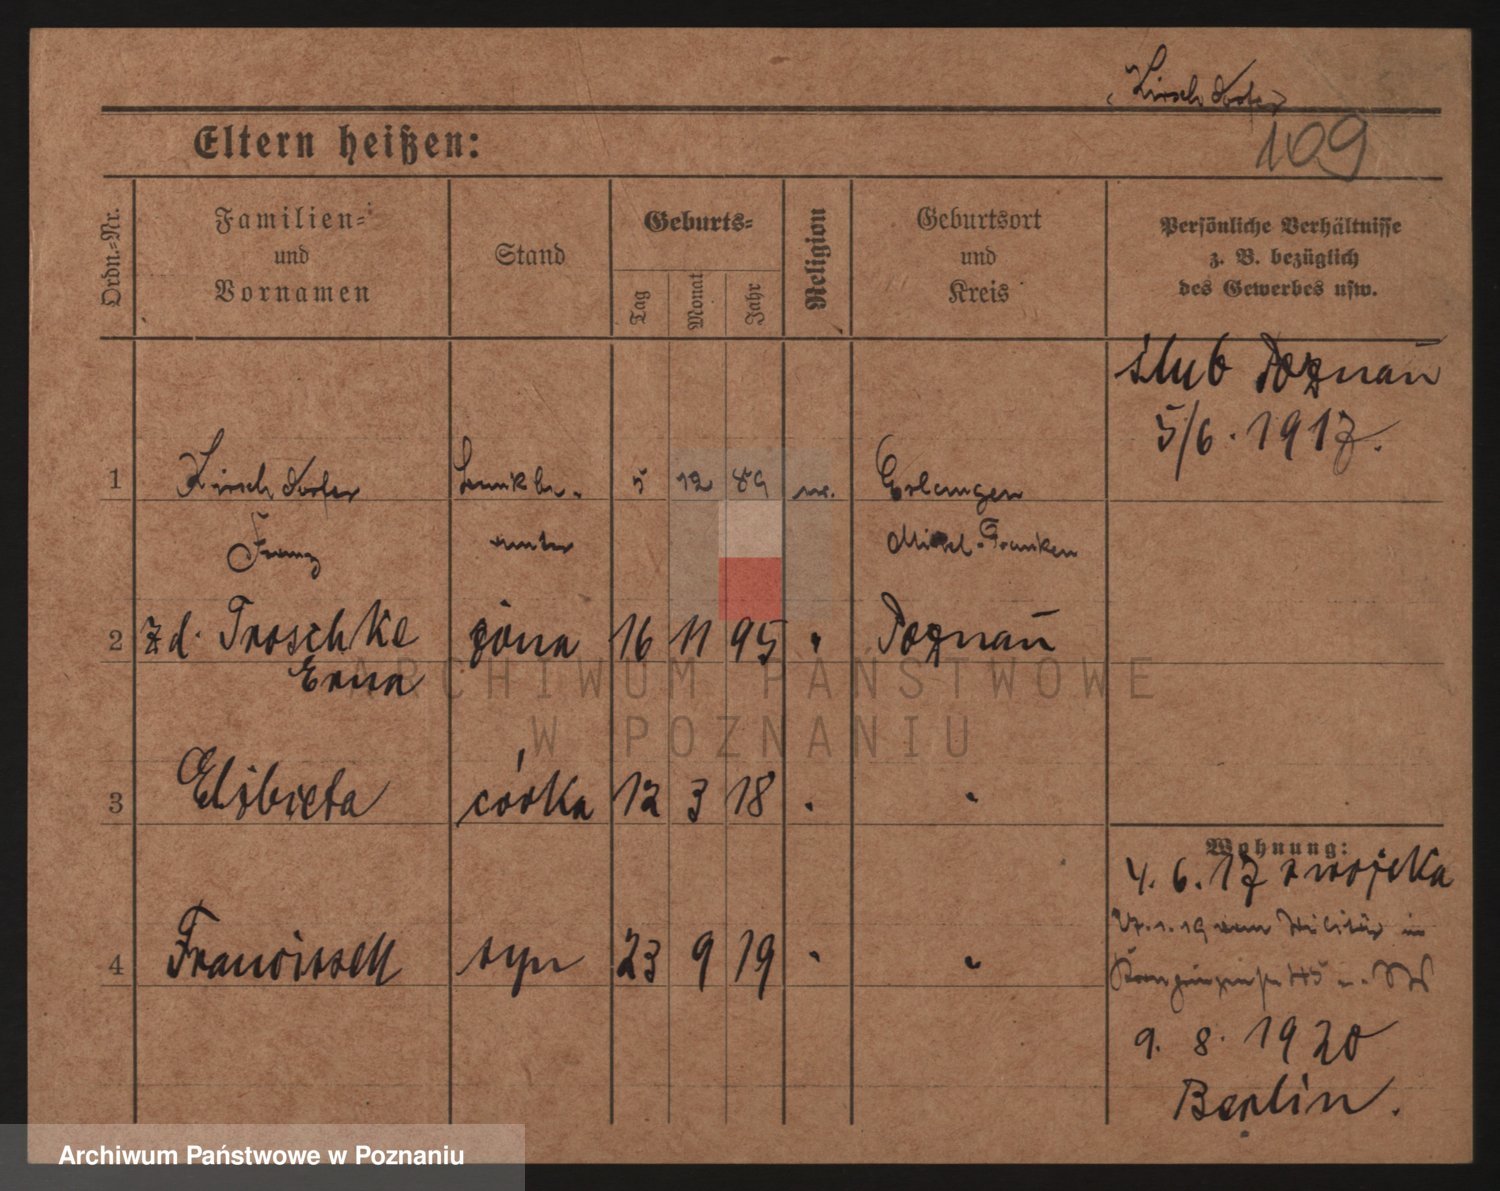 Kirschdorfer
109
Eltern heißen:
Ordn.-Nr.
Familien-
und
Vornamen
Stand
Geburts-
Tag
Monat
Jahr
Religion
Geburtsort
und
Kreis
Persönliche Verhältnisse
z. B. bezüglich
des Gewerbes usw.
ślub Poznań
5/6. 1917.
1 5 12 89 Erlangen
Franz Mittel-Franken
2 zd. Troschke żona 16 11 95 " Poznań
Erna
3 Elżbieta córka 12 3 18 " "
4 Franciszek syn 23 9 19 " "
Wohnung:
4. 6. 17
vom Militär in
9. 8. 1920
Berlin.
ARCHIWUM PAŃSTWOWE
W POZNANIU
Archiwum Państwowe w Poznaniu